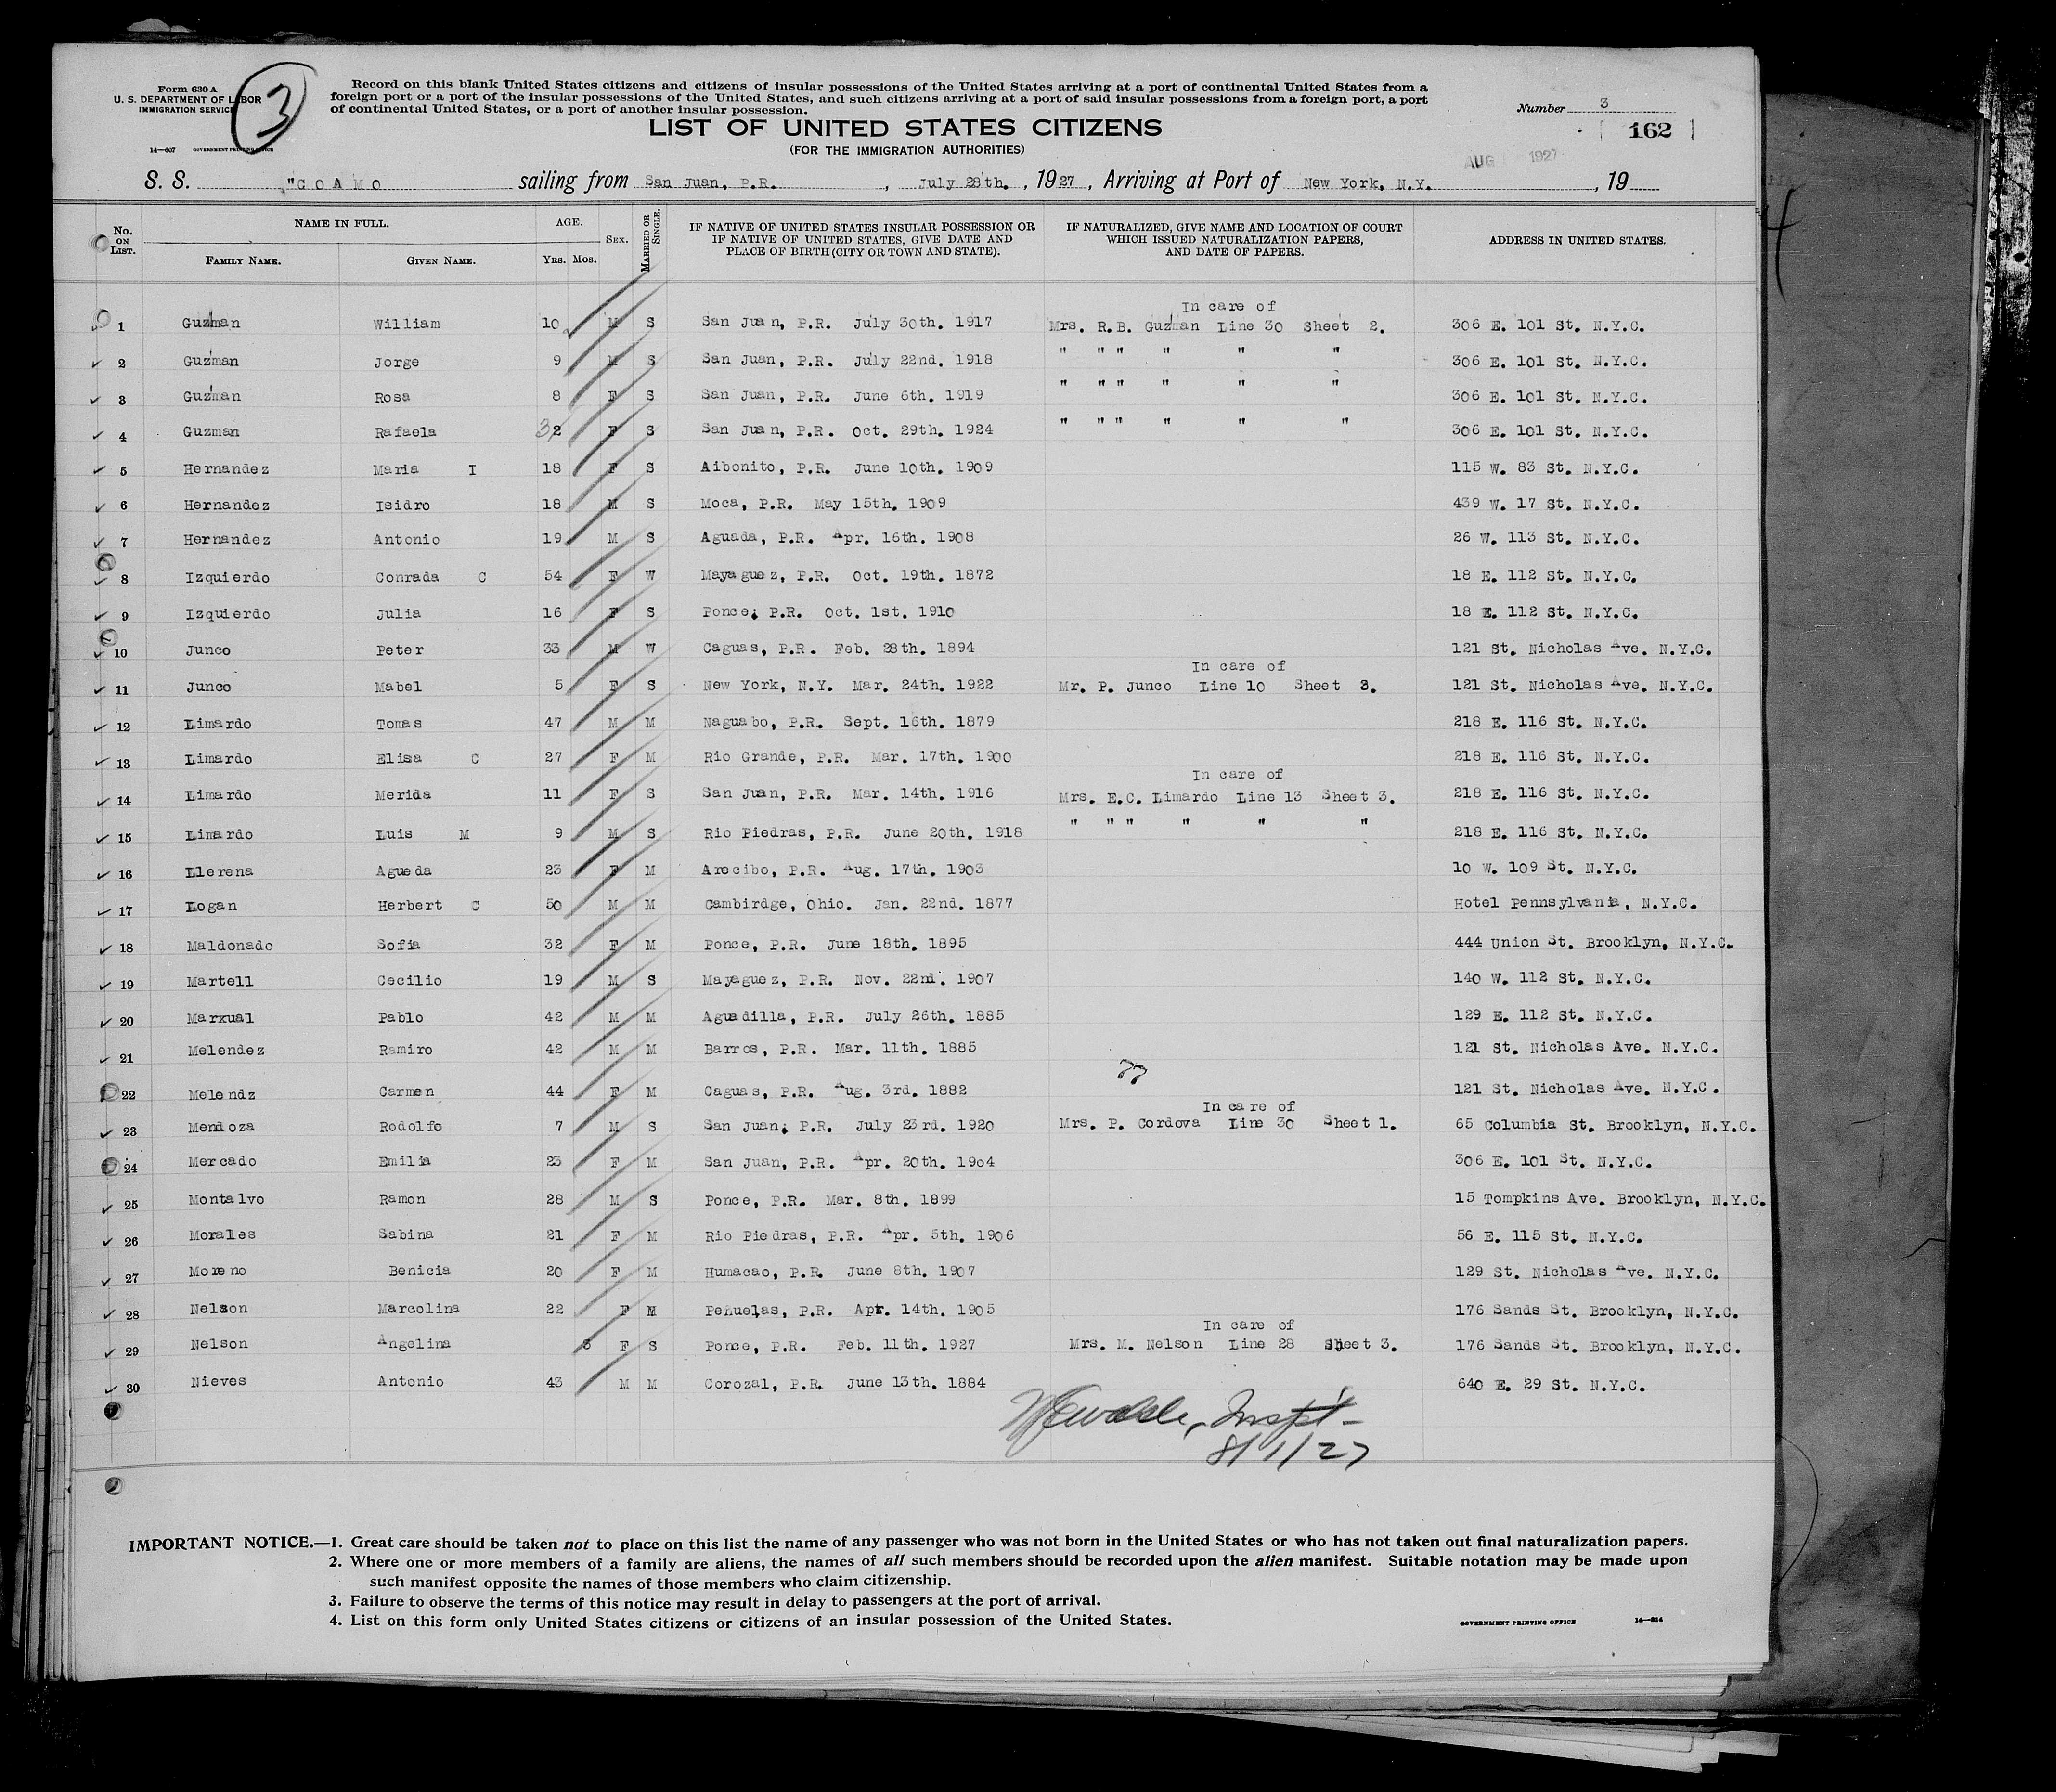 Form 630 A
U. S. DEPARTMENT OF LABOR
IMMIGRATION SERVICE
3
14—607 GOVERNMENT PRINTING OFFICE
Record on this blank United States citizens and citizens of insular possessions of the United States arriving at a port of continental United States from a
foreign port or a port of the insular possessions of the United States, and such citizens arriving at a port of said insular possessions from a foreign port, a port
of continental United States, or a port of another insular possession.
Number 3
LIST OF UNITED STATES CITIZENS
162
(FOR THE IMMIGRATION AUTHORITIES)
AUG 1927
S. S. "COAMO sailing from San Juan, P.R. , July 28th. , 1927 , Arriving at Port of New York, N.Y. , 19
No. ON LIST. NAME IN FULL. FAMILY NAME. GIVEN NAME. AGE. YRS. MOS. SEX. MARRIED OR SINGLE. IF NATIVE OF UNITED STATES INSULAR POSSESSION OR IF NATIVE OF UNITED STATES, GIVE DATE AND PLACE OF BIRTH (CITY OR TOWN AND STATE). IF NATURALIZED, GIVE NAME AND LOCATION OF COURT WHICH ISSUED NATURALIZATION PAPERS, AND DATE OF PAPERS. ADDRESS IN UNITED STATES.
In care of
1 Guzman William 10 M S San Juan, P.R. July 30th. 1917 Mrs. R.B. Guzman Line 30 Sheet 2. 306 E. 101 St. N.Y.C.
2 Guzman Jorge 9 M S San Juan, P.R. July 22nd. 1918 " " " " " " 306 E. 101 St. N.Y.C.
3 Guzman Rosa 8 F S San Juan, P.R. June 6th. 1919 " " " " " " 306 E. 101 St. N.Y.C.
4 Guzman Rafaela 32 F S San Juan, P.R. Oct. 29th. 1924 " " " " " " 306 E. 101 St. N.Y.C.
5 Hernandez Maria I 18 F S Aibonito, P.R. June 10th. 1909 115 W. 83 St. N.Y.C.
6 Hernandez Isidro 18 M S Moca, P.R. May 15th. 1909 439 W. 17 St. N.Y.C.
7 Hernandez Antonio 19 M S Aguada, P.R. Apr. 16th. 1908 26 W. 113 St. N.Y.C.
8 Izquierdo Conrada C 54 F W Mayaguez, P.R. Oct. 19th. 1872 18 E. 112 St. N.Y.C.
9 Izquierdo Julia 16 F S Ponce, P.R. Oct. 1st. 1910 18 E. 112 St. N.Y.C.
10 Junco Peter 33 M W Caguas, P.R. Feb. 28th. 1894 121 St. Nicholas Ave. N.Y.C.
In care of
11 Junco Mabel 5 F S New York, N.Y. Mar. 24th. 1922 Mr. P. Junco Line 10 Sheet 3. 121 St. Nicholas Ave. N.Y.C.
12 Limardo Tomas 47 M M Naguabo, P.R. Sept. 16th. 1879 218 E. 116 St. N.Y.C.
13 Limardo Elisa C 27 F M Rio Grande, P.R. Mar. 17th. 1900 218 E. 116 St. N.Y.C.
In care of
14 Limardo Merida 11 F S San Juan, P.R. Mar. 14th. 1916 Mrs. E.C. Limardo Line 13 Sheet 3. 218 E. 116 St. N.Y.C.
15 Limardo Luis M 9 M S Rio Piedras, P.R. June 20th. 1918 " " " " " " 218 E. 116 St. N.Y.C.
16 Llerena Agueda 23 F M Arecibo, P.R. Aug. 17th. 1903 10 W. 109 St. N.Y.C.
17 Logan Herbert C 50 M M Cambirdge, Ohio. Jan. 22nd. 1877 Hotel Pennsylvania, N.Y.C.
18 Maldonado Sofia 32 F M Ponce, P.R. June 18th. 1895 444 Union St. Brooklyn, N.Y.C.
19 Martell Cecilio 19 M S Mayaguez, P.R. Nov. 22nd. 1907 140 W. 112 St. N.Y.C.
20 Marxual Pablo 42 M M Aguadilla, P.R. July 26th. 1885 129 E. 112 St. N.Y.C.
21 Melendez Ramiro 42 M M Barros, P.R. Mar. 11th. 1885 121 St. Nicholas Ave. N.Y.C.
22 Melendz Carmen 44 F M Caguas, P.R. Aug. 3rd. 1882 121 St. Nicholas Ave. N.Y.C.
In care of
23 Mendoza Rodolfo 7 M S San Juan, P.R. July 23rd. 1920 Mrs. P. Cordova Line 30 Sheet 1. 65 Columbia St. Brooklyn, N.Y.C.
24 Mercado Emilia 23 F M San Juan, P.R. Apr. 20th. 1904 306 E. 101 St. N.Y.C.
25 Montalvo Ramon 28 M S Ponce, P.R. Mar. 8th. 1899 15 Tompkins Ave. Brooklyn, N.Y.C.
26 Morales Sabina 21 F M Rio Piedras, P.R. Apr. 5th. 1906 56 E. 115 St. N.Y.C.
27 Moreno Benicia 20 F M Humacao, P.R. June 8th. 1907 129 St. Nicholas Ave. N.Y.C.
28 Nelson Marcolina 22 F M Peñuelas, P.R. Apr. 14th. 1905 176 Sands St. Brooklyn, N.Y.C.
In care of
29 Nelson Angelina F S Ponce, P.R. Feb. 11th. 1927 Mrs. M. Nelson Line 28 Sheet 3. 176 Sands St. Brooklyn, N.Y.C.
30 Nieves Antonio 43 M M Corozal, P.R. June 13th. 1884 640 E. 29 St. N.Y.C.
Inspt-
8/1/27
IMPORTANT NOTICE.—1. Great care should be taken not to place on this list the name of any passenger who was not born in the United States or who has not taken out final naturalization papers.
2. Where one or more members of a family are aliens, the names of all such members should be recorded upon the alien manifest. Suitable notation may be made upon
such manifest opposite the names of those members who claim citizenship.
3. Failure to observe the terms of this notice may result in delay to passengers at the port of arrival.
4. List on this form only United States citizens or citizens of an insular possession of the United States.
GOVERNMENT PRINTING OFFICE 14—214